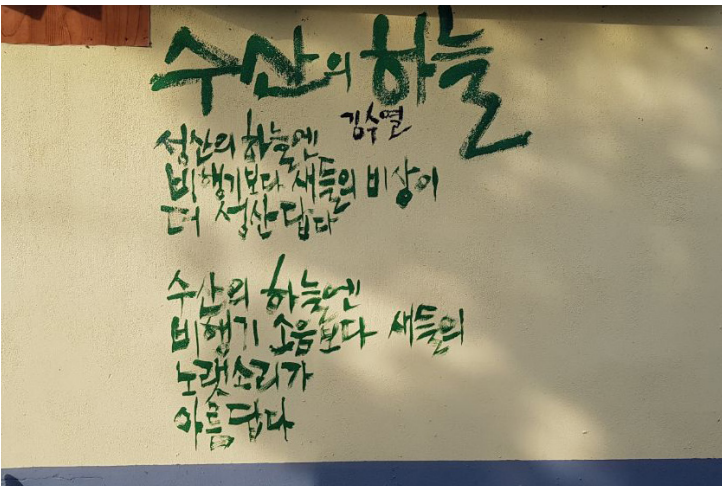 수산의 하늘
김수열
성산의 하늘엔
비행기보다 새들의 비상이
더 성산답다
수산의 하늘엔
비행기 소음보다 새들의
노랫소리가
아름답다